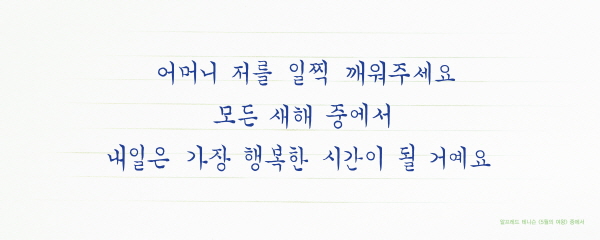 어머니 저를 일찍 깨워주세요
모든 새해 중에서
내일은 가장 행복한 시간이 될 거예요
알프레드 테니슨 <5월의 여왕> 중에서